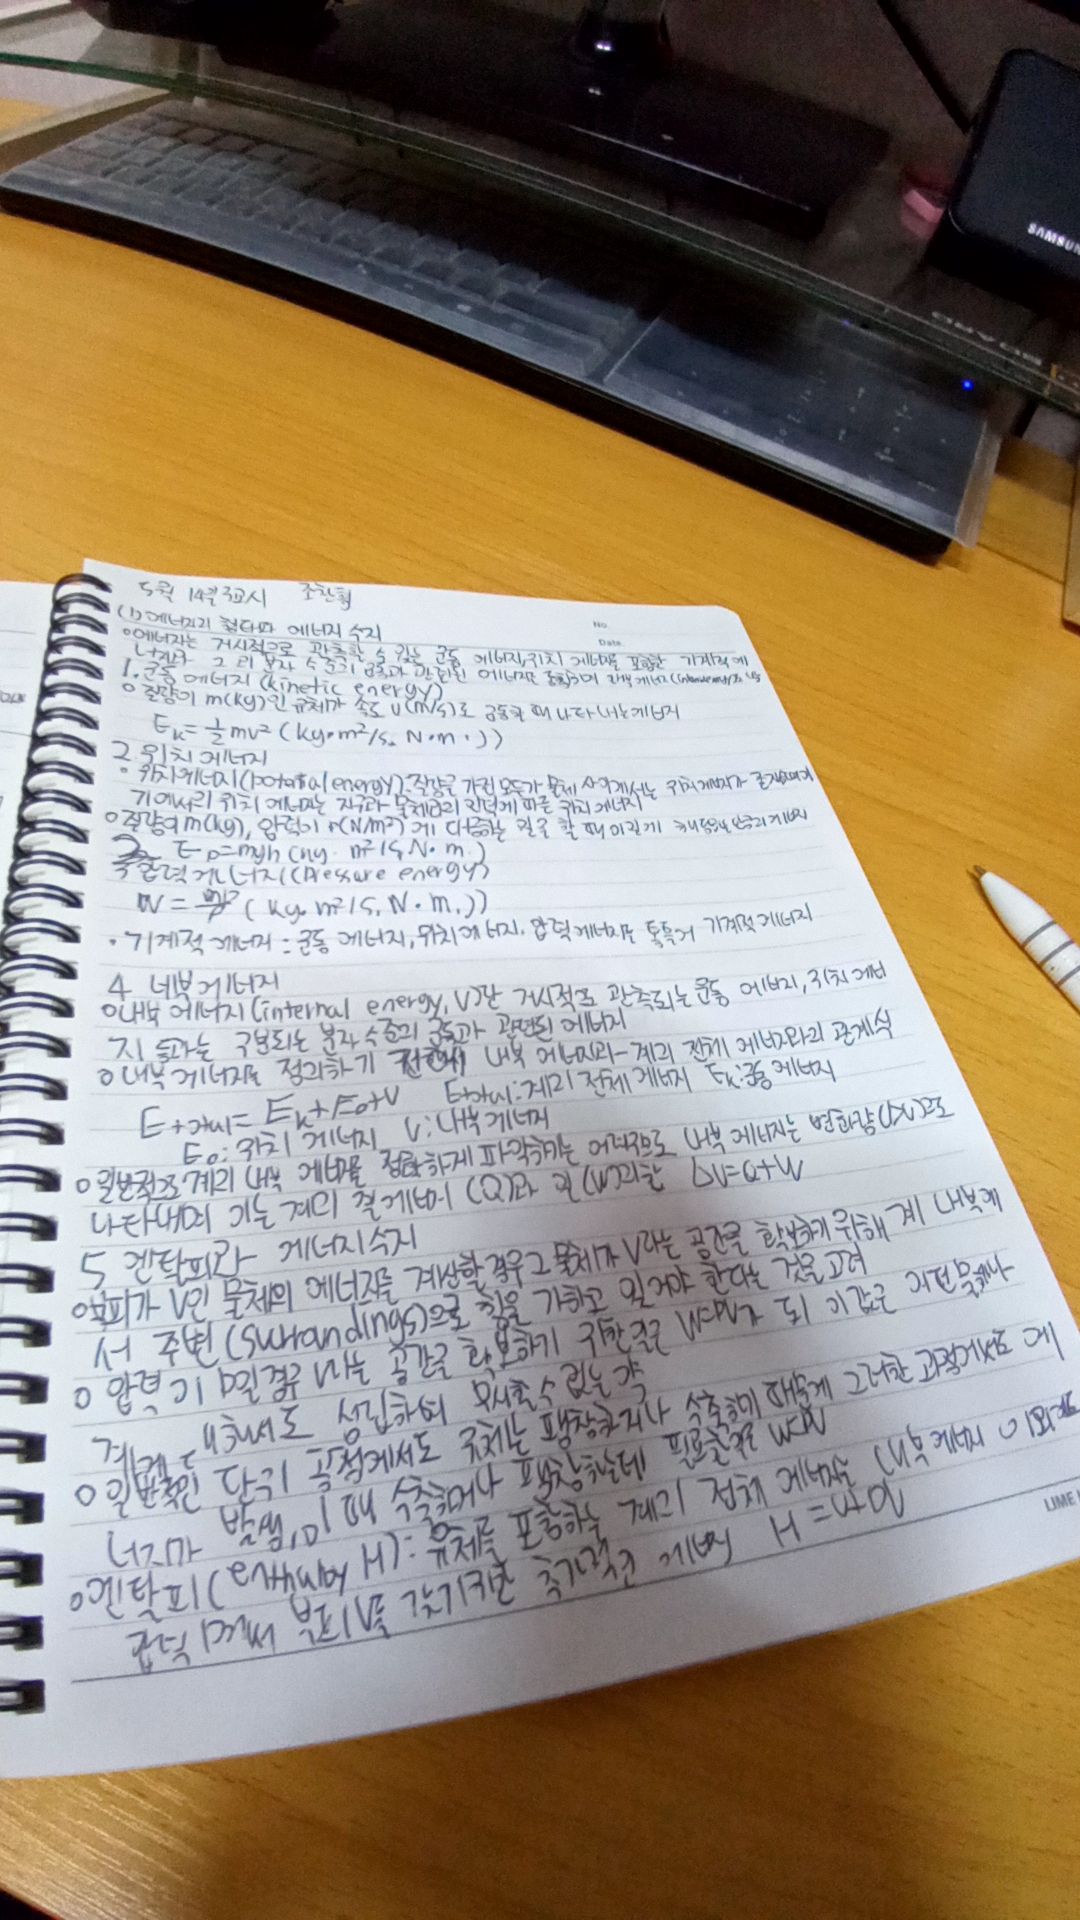 SAMSUN
BOARD
5월 14일 3교시 조찬혁
No.
Date
(1) 에너지의 형태와 에너지 수지
○에너지는 거시적으로 관측할 수 있는 운동 에너지, 위치 에너지를 포함한 기계적 에
너지와 그 리 분자 수준의 운동과 관련된 에너지를 내부 에너지
1. 운동 에너지 (kinetic energy)
○ 질량이 m(kg)인 유체가 속도 u(m/s)로 운동할 때 나타내는 에너지
Ek = 1/2 mv² (kg·m²/s. N·m·J)
2. 위치 에너지
· 위치에너지(potential energy): 질량을 가진 모든 물체 사이에서는 위치에너지가 존재하며 여
기에서의 위치 에너지는 지구과 물체의 인력에 따른 위치 에너지
○ 질량이 m(kg), 압력이 P(N/m²)에 대응하는 일을 할 때 이렇게
Ep=mgh (kg· m²/s, N·m.)
3 압력 에너지(Pressure energy)
W = (kg. m²/s. N·m. J)
· 기계적 에너지 : 운동 에너지, 위치에너지. 압력 에너지는 통틀어 기계적 에너지
4 내부에너지
○내부 에너지(internal energy, V)란 거시적으로 관측되는 운동 에너지, 위치 에너
지 등과는 구분되는 분자 수준의 운동과 관련된 에너지
○ 내부 에너지를 정의하기 내부 에너지와 계의 전체 에너지와의 관계식
E total = Ek+Ep+V E total: 계의 전체 에너지 Ek:운동 에너지
Ep: 위치 에너지 V: 내부 에너지
○ 일반적으로 계의 내부 에너지를 정확하게 파악하기는 어려우므로 내부 에너지는 변화량(ΔV)으로
나타내며 이는 계의 열에너지 (Q)와 일(W)의합 ΔV=Q+W
5 엔탈피와 에너지수지
○부피가 V인 물체의 에너지를 계산할 경우 그 물체가 V라는 공간을 확보하기 위해 계 내부에
서 주변 (surroundings)으로 힘을 가하고 있어야 한다는 것을 고려
○ 압력이 P일 경우 V라는 공간을 확보하기 위한 일은 W=PV가 되 이 값은 어떤 물체나
계에 대해서도 성립하며 무시할 수 없는 값
○ 일반적인 단위 공정에서도 유체는 팽창하거나 수축하며 때문에 그러한 과정에서도 에
너지가 발생, 이 때 수축하거나 팽창하는데 필요한 일은 W=PV
○엔탈피 (enthalpy H): 유체를 포함하는 계의 전체 에너지는 내부 에너지 이외에도
압력 P에서 부피 V를 갖기 위한 추가적인 에너지 H = U+PV
LIME